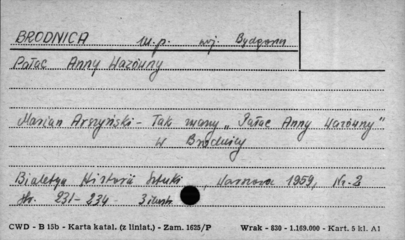 BRODNICA m.p. woj. Bydgoszcz
Pałac Anny Wazówny
Marian Arszyński - Tak zwany „Pałac Anny Wazówny”
w Brodnicy
Biuletyn Historii Sztuki, Warszawa 1959, Nr. 2
str. 231-234 3 ilustr.
CWD - B 15b - Karta katal. (z liniat.) - Zam. 1625/P Wrak - 830 - 1.169.000 - Kart. 5 kl. A1